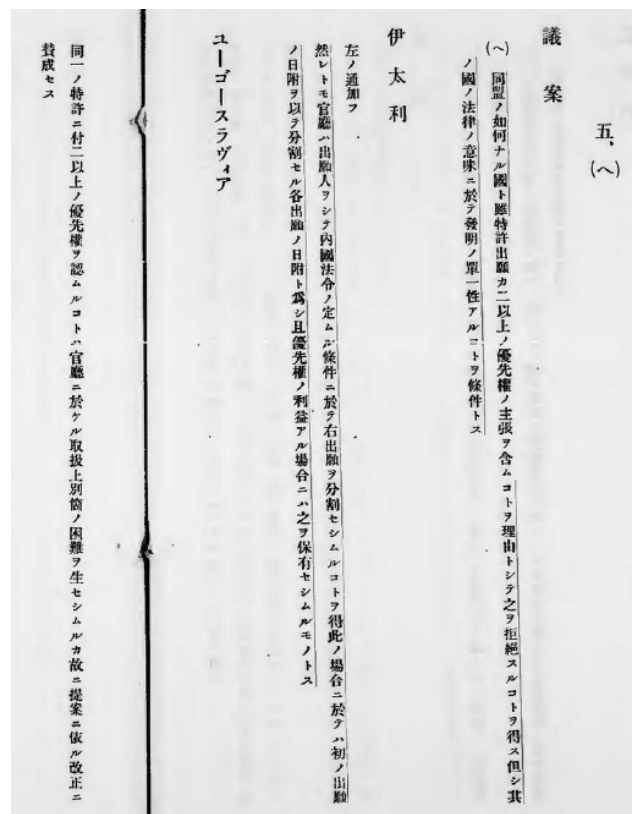 五、(ヘ)
議案
(ヘ) 同盟ノ如何ナル國ト雖特許出願カ二以上ノ優先權ノ主張ヲ含ムコトヲ理由トシテ之ヲ拒絕スルコトヲ得ス但シ其
ノ國ノ法律ノ意味ニ於テ發明ノ單一性アルコトヲ條件トス
伊太利
左ノ通加フ
然レトモ官廳ハ出願人ヲシテ內國法令ノ定ムル條件ニ於テ右出願ヲ分割セシムルコトヲ得此ノ場合ニ於テハ初ノ出願
ノ日附ヲ以テ分割セル各出願ノ日附ト爲シ且優先權ノ利益アル場合ニハ之ヲ保有セシムルモノトス
ユーゴースラヴィア
同一ノ特許ニ付二以上ノ優先權ヲ認ムルコトハ官廳ニ於ケル取扱上別箇ノ困難ヲ生セシムルカ故ニ提案ニ依ル改正ニ
賛成セス